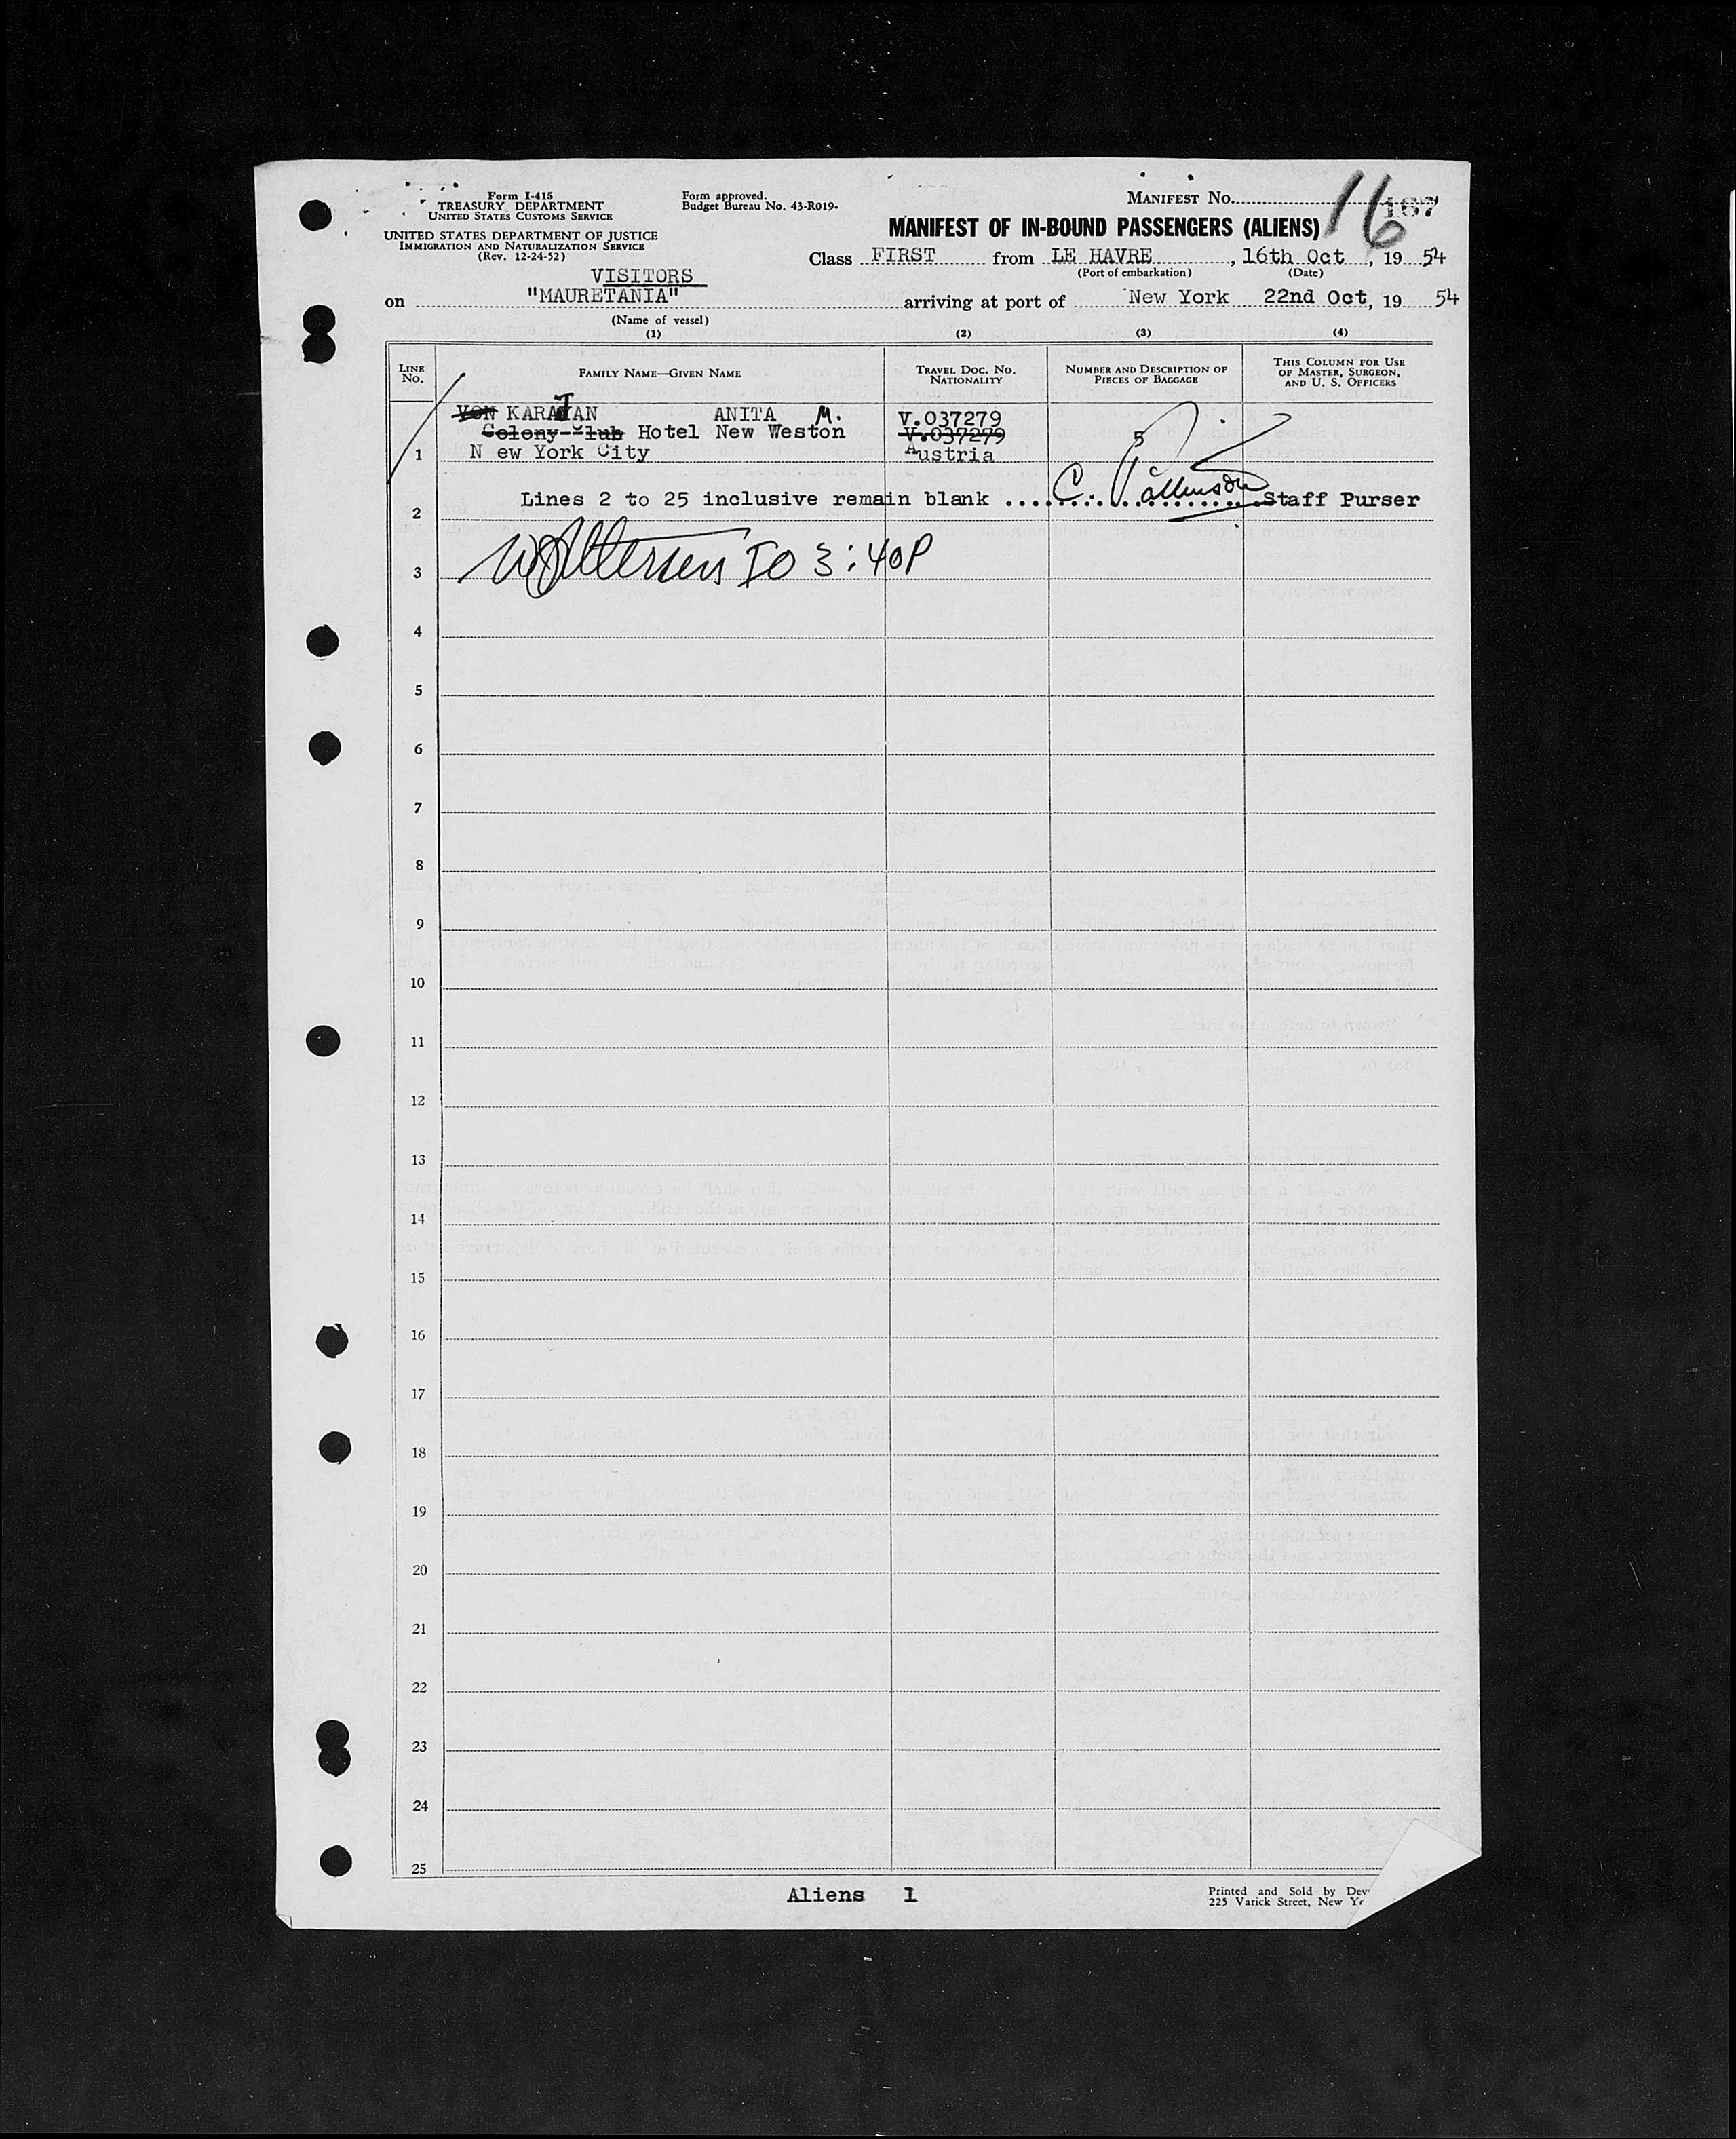 Form I-415
TREASURY DEPARTMENT
UNITED STATES CUSTOMS SERVICE
UNITED STATES DEPARTMENT OF JUSTICE
IMMIGRATION AND NATURALIZATION SERVICE
(Rev. 12-24-52)
Form approved.
Budget Bureau No. 43-R019-
MANIFEST NO. 167
16
MANIFEST OF IN-BOUND PASSENGERS (ALIENS)
Class FIRST from LE HAVRE, 16th Oct, 19 54
(Port of embarkation) (Date)
VISITORS
on "MAURETANIA" arriving at port of New York 22nd Oct, 19 54
(Name of vessel)
(1) (2) (3) (4)
LINE NO.
FAMILY NAME—GIVEN NAME
TRAVEL DOC. NO. NATIONALITY
NUMBER AND DESCRIPTION OF PIECES OF BAGGAGE
THIS COLUMN FOR USE OF MASTER, SURGEON, AND U. S. OFFICERS
VON KARAJAN ANITA M. V.037279
Colony-Club Hotel New Weston V.037279 5
1 New York City Austria
2 Lines 2 to 25 inclusive remain blank .... C. .... Staff Purser
3 IO 3:40P
4
5
6
7
8
9
10
11
12
13
14
15
16
17
18
19
20
21
22
23
24
25
Aliens 1
Printed and Sold by
225 Varick Street, New